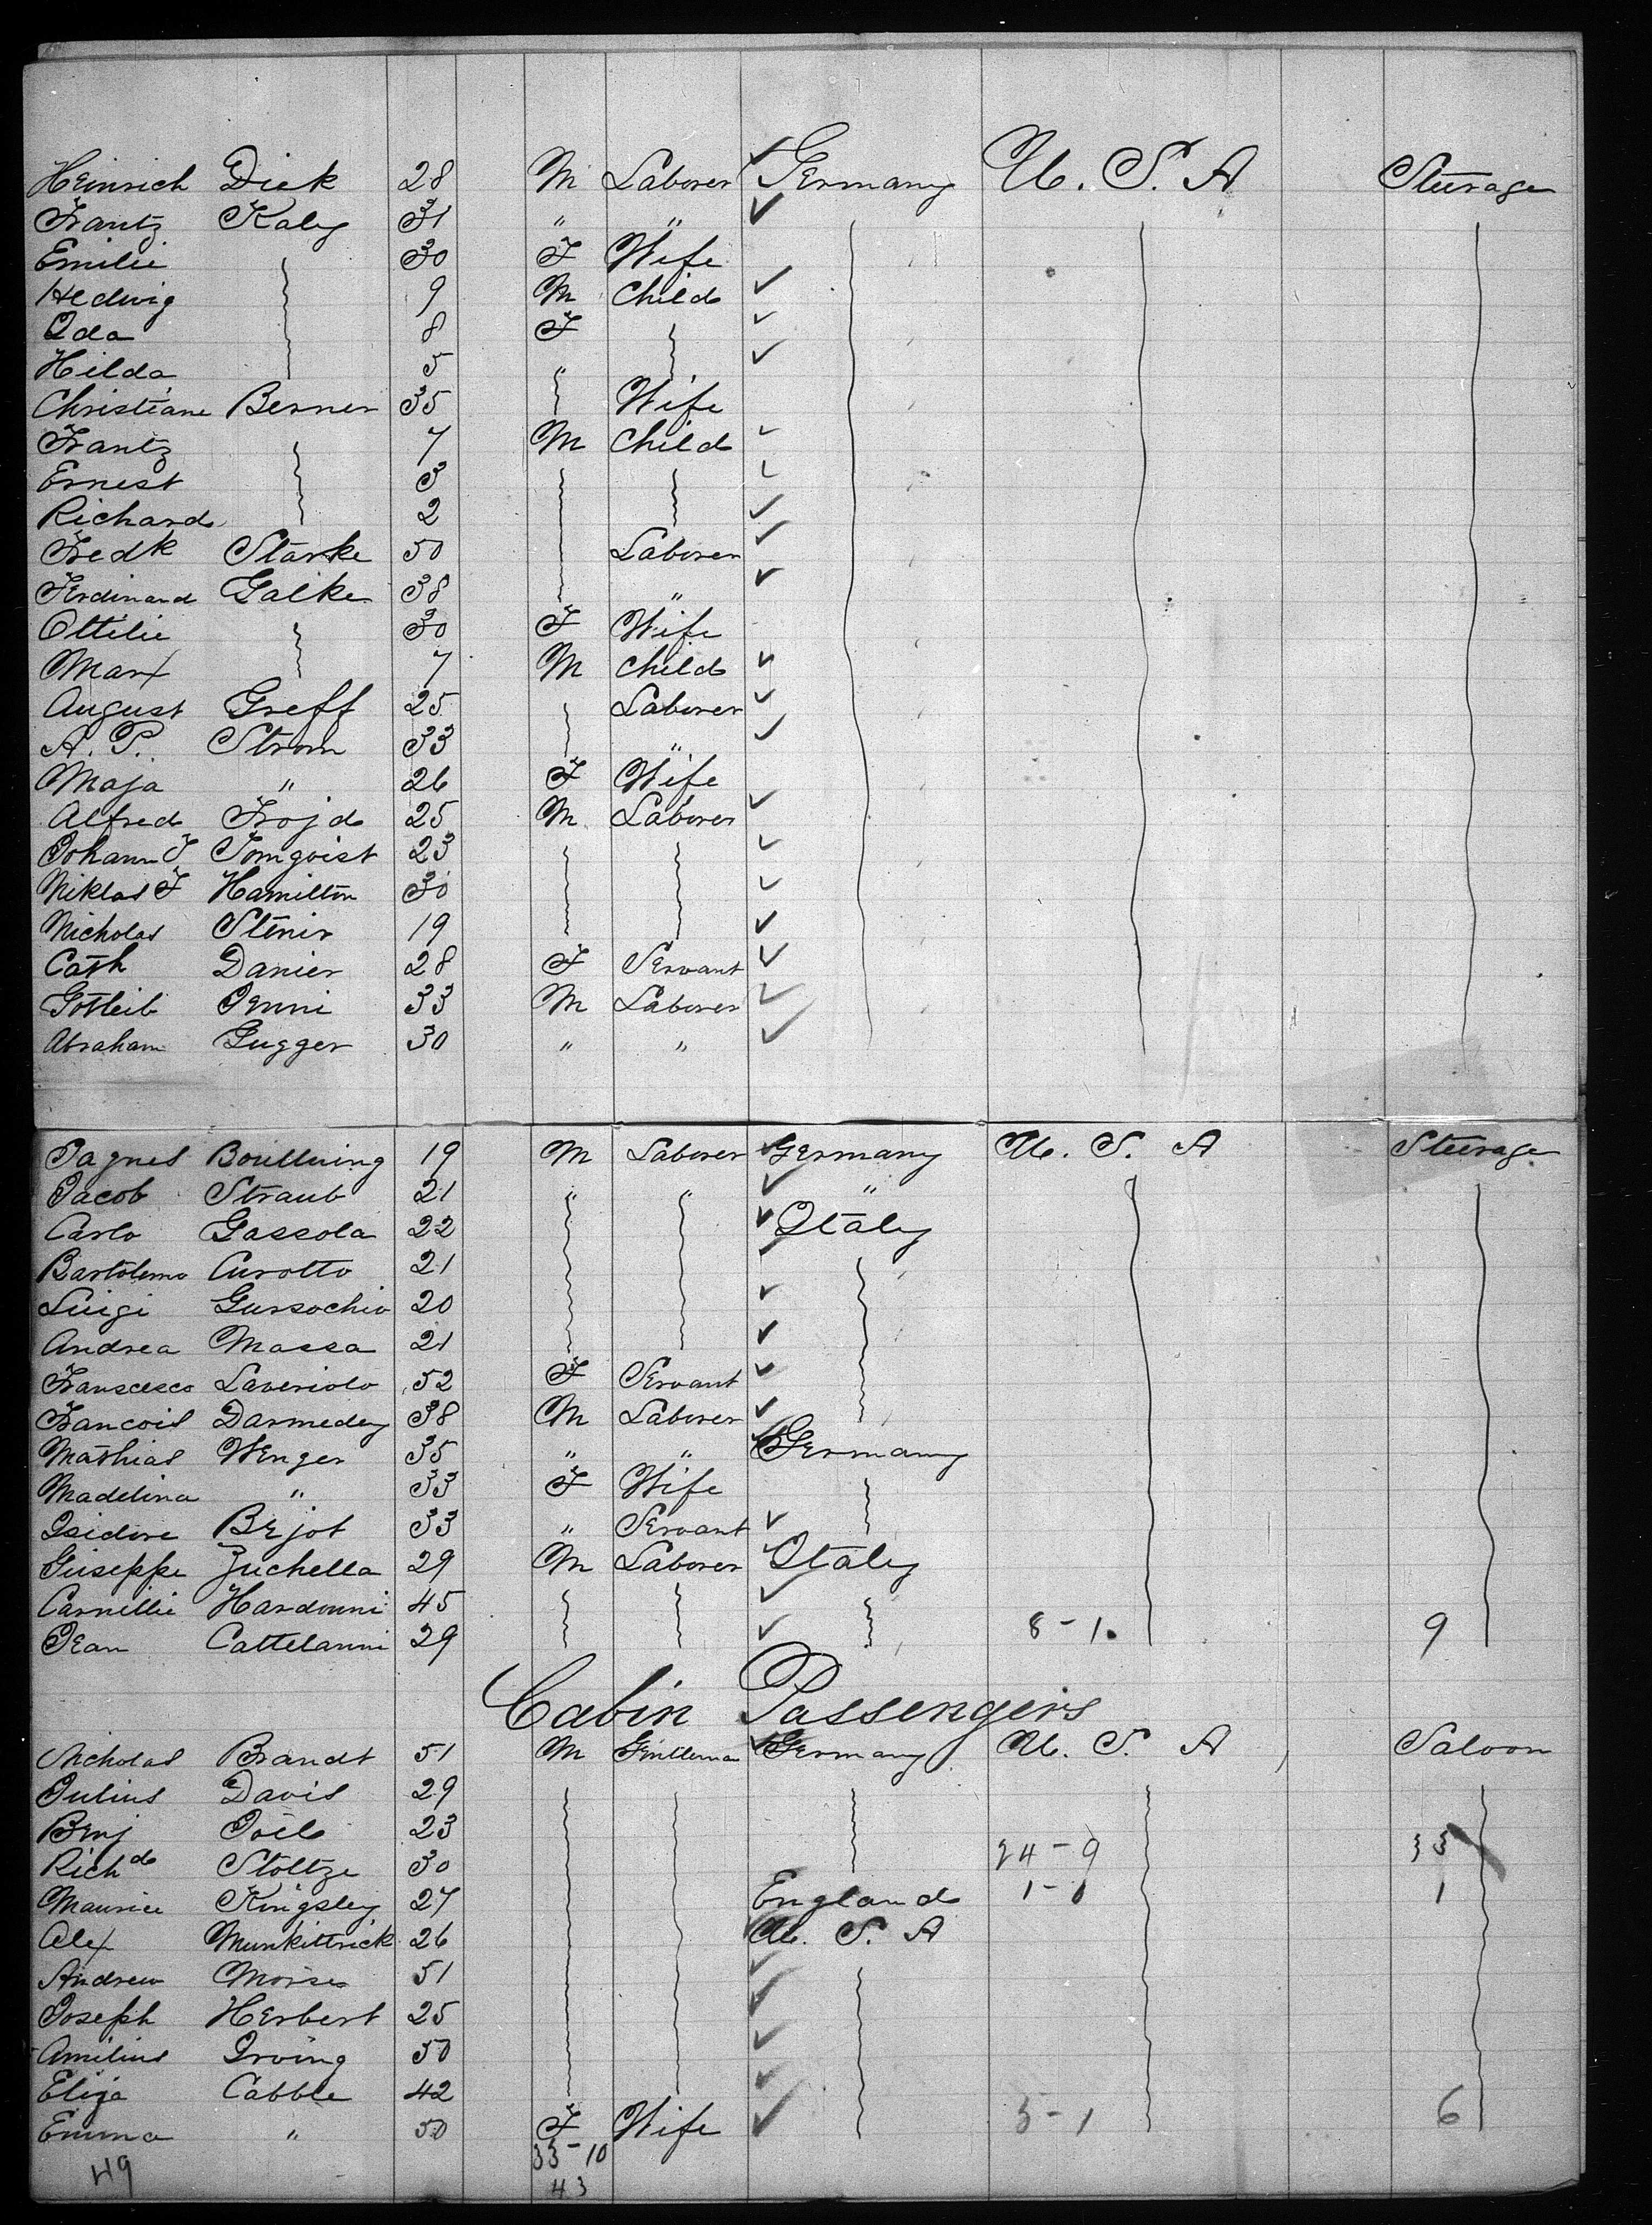 Heinrich Dick 28 M Laborer Germany U. S. A Steerage
Frantz Kaley 31 " "
Emilie 30 F Wife
Hedwig 9 M Child
Ida 8 F
Hilda 5 "
Christiane Berner 35 Wife
Frantz 7 M Child
Ernest 3
Richard 2
Fredk Starke 50 Laborer
Ferdinand Galke 38 "
Ottilie 30 F Wife
Max 7 M Child
August Greff 25 Laborer
A. P. Strom 33 "
Maja " 26 F Wife
Alfred Frojd 25 M Laborer
Johann F Tomqvist 23
Niklas F Hamilton 30
Nicholas Stenir 19
Cath Danier 28 F Servant
Gotleib Jenni 33 M Laborer
Abraham Gugger 30 " "
19 M Laborer Germany U. S. A Steerage
Jacob Straub 21 " " "
Carlo Gassola 22 Italy
Bartolemo Curotto 21
Luigi Gursochio 20
Andrea Massa 21
Franscesco Laveriolo 52 F Servant
Francois Darmedey 38 M Laborer
Mathias Wenger 35 " " Germany
Madelina " 33 F Wife
Isidore Bejot 33 " Servant
Giuseppe Zuchella 29 M Laborer Italy
Carnillie Hardouni 45
Jean Cattelanni 29 8-1 9
Cabin Passengers
Nicholas Brandt 51 M Gentleman Germany U. S. A Saloon
Julius Davis 29
Benj Joel 23
Richd Stoltze 30 24-9 33
Maurice Kingsley 27 England 1-0 1
Alex Munkittrick 26 U. S. A
Andrew Morse 51
Joseph Herbert 25
Amilius Irving 50
Eliza Cabble 42
Emma " 50 F Wife 5-1 6
49 33-10
43